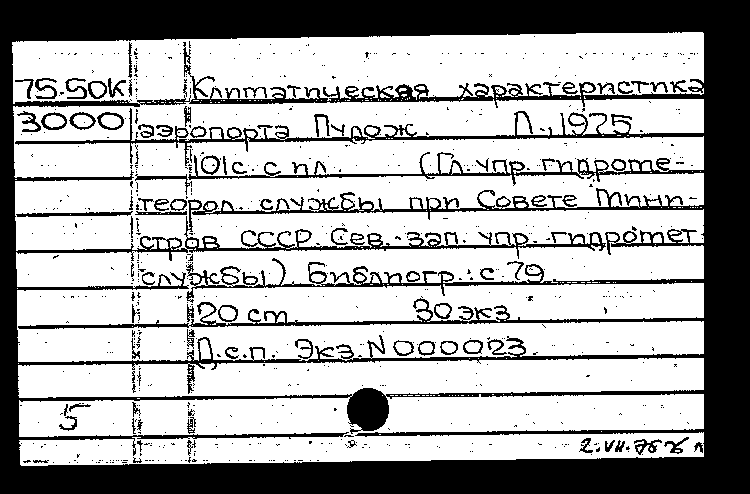 75.50К Климатическая характеристика
3000 аэропорта Пудож. Л., 1975.
101 с. с пл. (Гл. упр. гидроме-
теорол. службы при Совете Мини-
стров СССР. Сев.-зап. упр. гидромет.
службы). Библиогр.: с. 79.
20 cm. 30 экз.
Д.с.п. Экз. N 000023.
5
2.VII.76